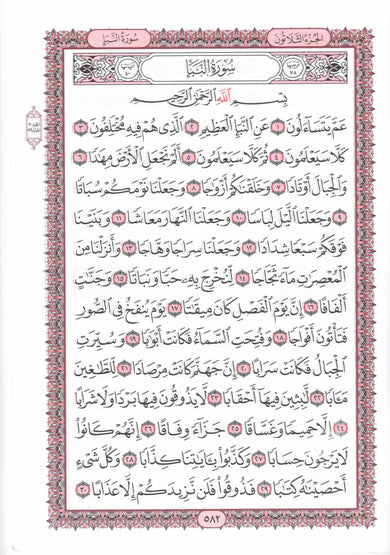 الجزء الثلاثون سورة النبإ
سورة النبإ
بسم الله الرحمن الرحيم
عم يتساءلون ١ عن النبإ العظيم ٢ الذي هم فيه مختلفون ٣
كلا سيعلمون ٤ ثم كلا سيعلمون ٥ ألم نجعل الأرض مهدا ٦
والجبال أوتادا ٧ وخلقنكم أزوجا ٨ وجعلنا نومكم سباتا
٩ وجعلنا اليل لباسا ١٠ وجعلنا النهار معاشا ١١ وبنينا
فوقكم سبعا شدادا ١٢ وجعلنا سراجا وهاجا ١٣ وأنزلنا من
المعصرت ماء ثجاجا ١٤ لنخرج به حبا ونباتا ١٥ وجنت
ألفافا ١٦ إن يوم الفصل كان ميقتا ١٧ يوم ينفخ في الصور
فتأتون أفواجا ١٨ وفتحت السماء فكانت أبوبا ١٩ وسيرت
الجبال فكانت سرابا ٢٠ إن جهنم كانت مرصادا ٢١ للطغين
مابا ٢٢ لبثين فيها أحقابا ٢٣ لا يذوقون فيها بردا ولا شرابا
٢٤ إلا حميما وغساقا ٢٥ جزاء وفاقا ٢٦ إنهم كانوا
لا يرجون حسابا ٢٧ وكذبوا بايتنا كذابا ٢٨ وكل شيء
أحصينه كتبا ٢٩ فذوقوا فلن نزيدكم إلا عذابا ٣٠
٥٨٢